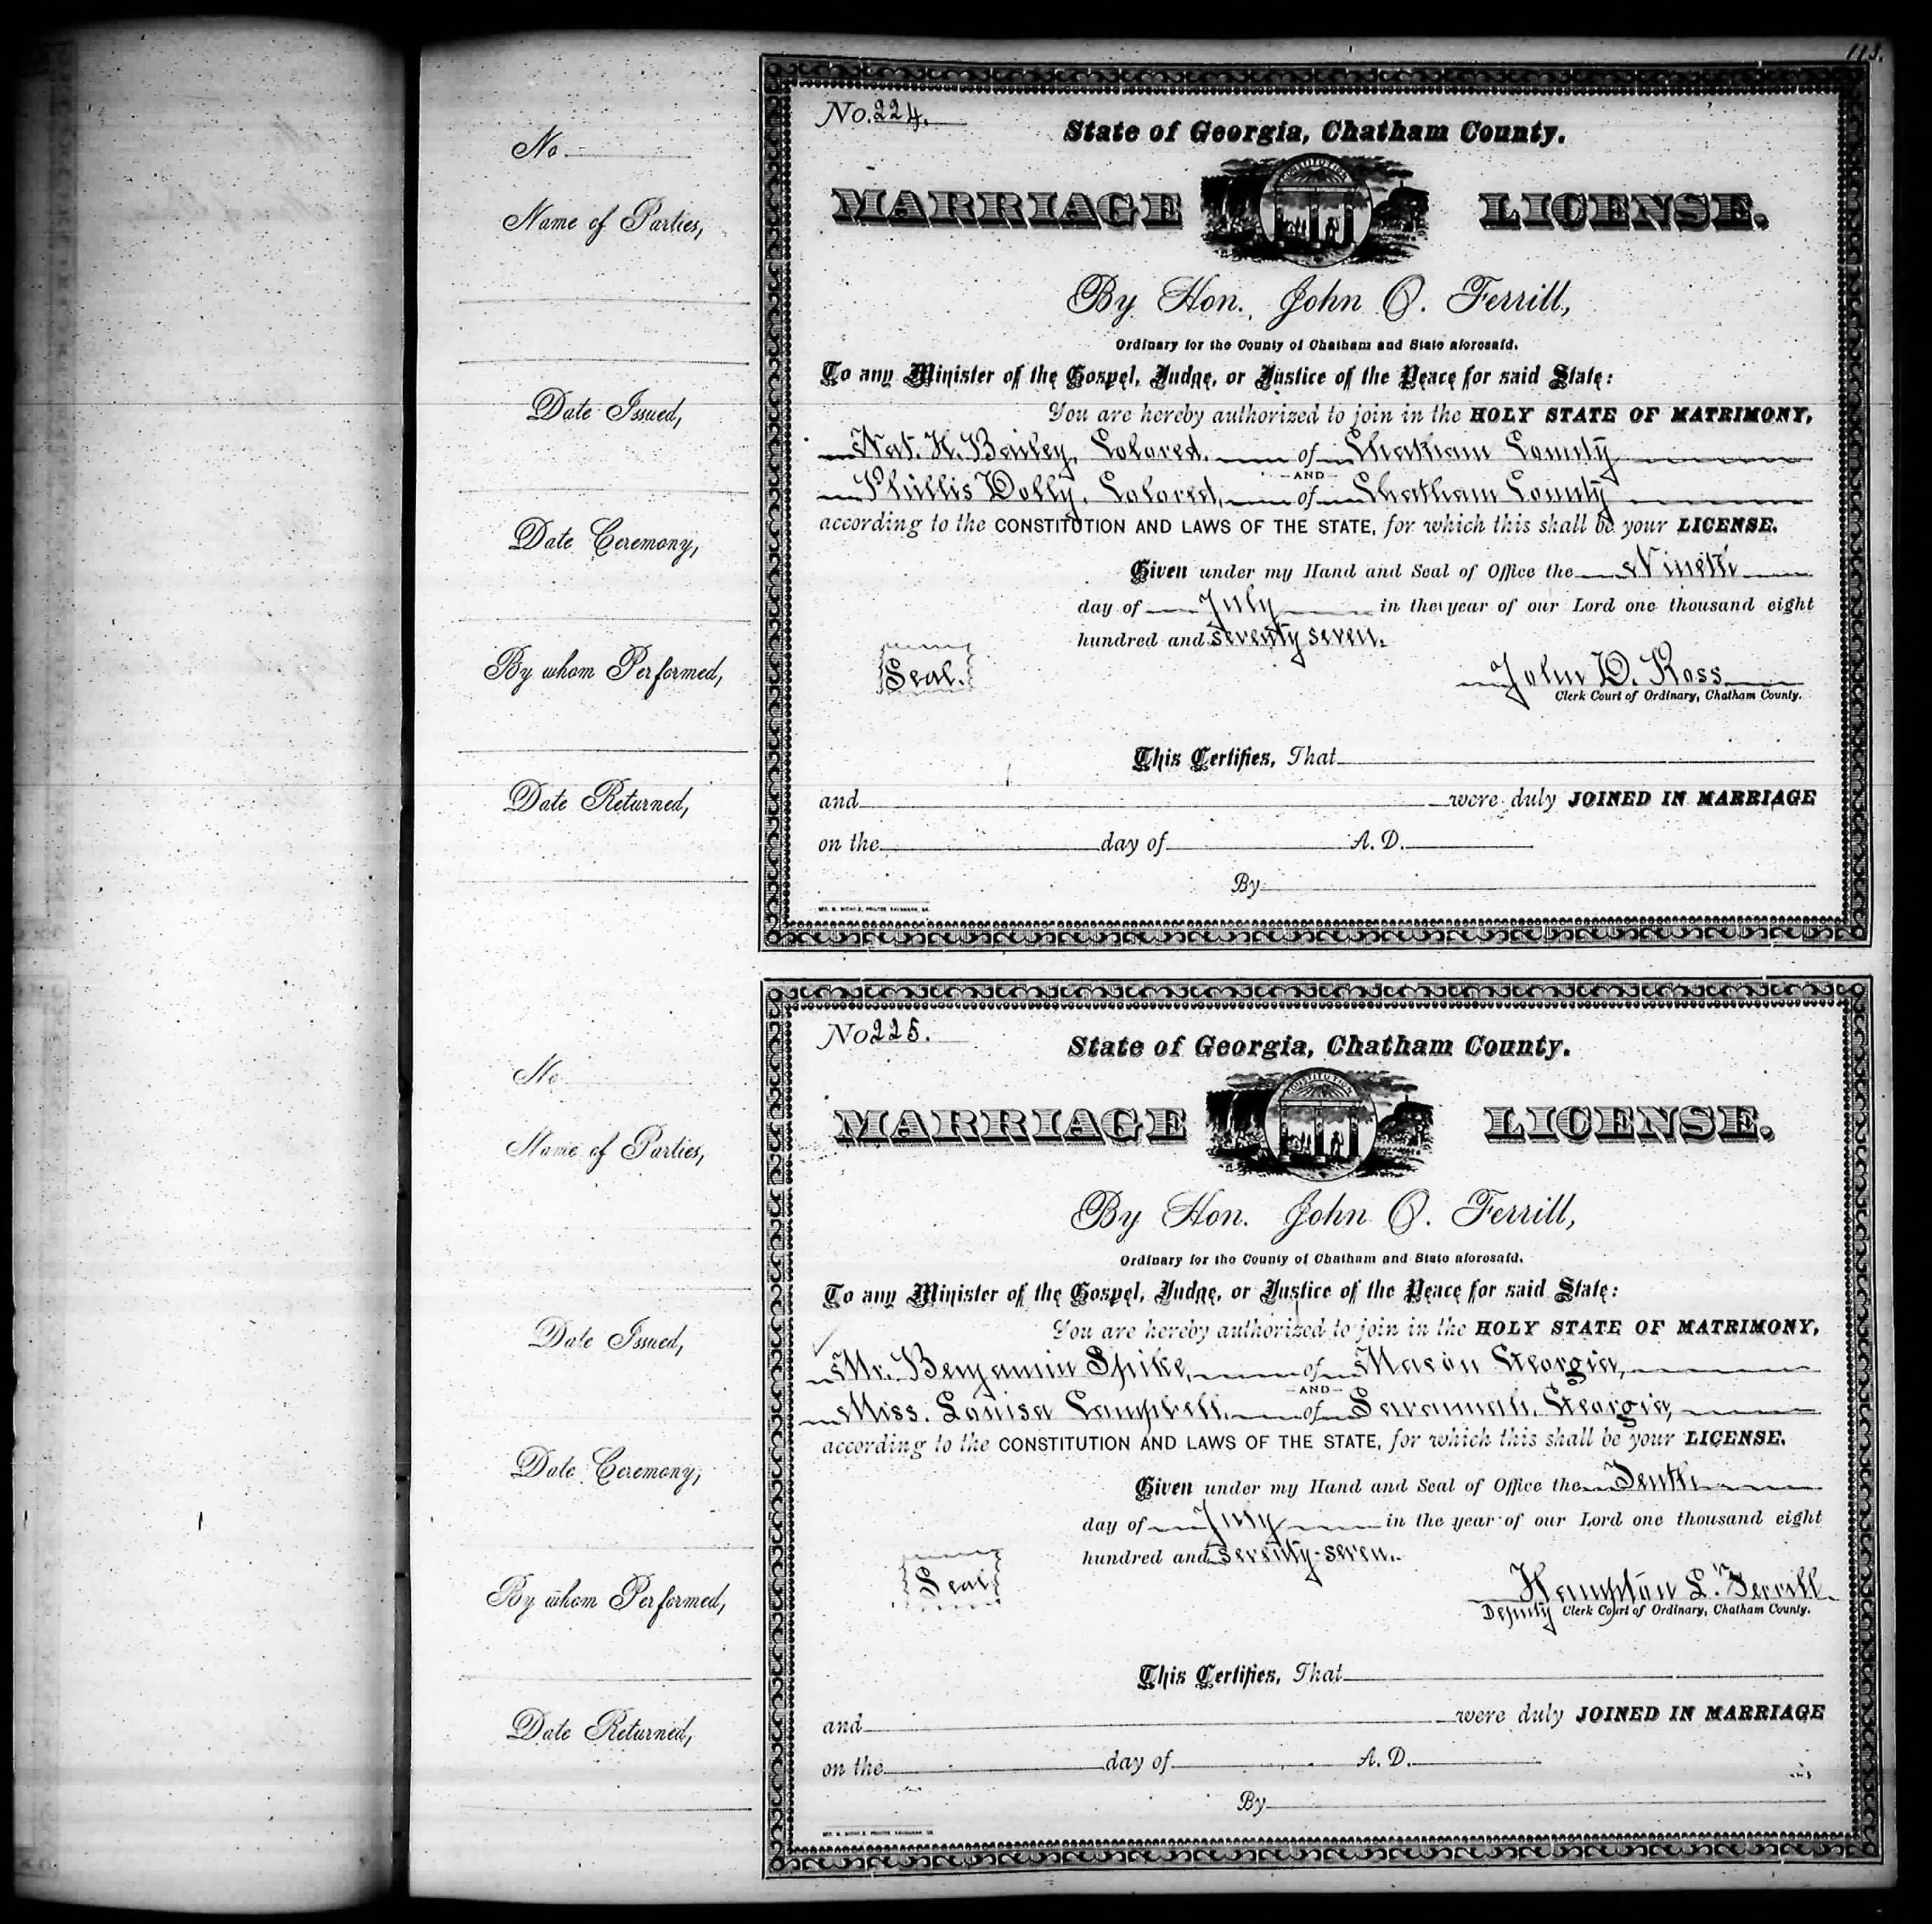 113.
No
Name of Parties,
Date Issued,
Date Ceremony,
By whom Performed,
Date Returned,
No. 224.
State of Georgia, Chatham County.
MARRIAGE LICENSE.
By Hon. John O. Ferrill,
Ordinary for the County of Chatham and State aforesaid.
To any Minister of the Gospel, Judge, or Justice of the Peace for said State:
You are hereby authorized to join in the HOLY STATE OF MATRIMONY,
Nat. H. Bailey, Colored. of Chatham County
AND
Phillis Dolly, Colored, of Chatham County
according to the CONSTITUTION AND LAWS OF THE STATE, for which this shall be your LICENSE.
Given under my Hand and Seal of Office the Nineth
day of July in the year of our Lord one thousand eight
hundred and seventy seven.
Seal.
John D. Ross
Clerk Court of Ordinary, Chatham County.
This Certifies, That
and were duly JOINED IN MARRIAGE
on the day of A. D.
By
No
Name of Parties,
Date Issued,
Date Ceremony,
By whom Performed,
Date Returned,
No 225.
State of Georgia, Chatham County.
MARRIAGE LICENSE.
CONSTITUTION
By Hon. John O. Ferrill,
Ordinary for the County of Chatham and State aforesaid.
To any Minister of the Gospel, Judge, or Justice of the Peace for said State:
You are hereby authorized to join in the HOLY STATE OF MATRIMONY,
Mr. Benjamin Spike, of Macon Georgia,
AND
Miss. Louisa Campbell, of Savannah, Georgia,
according to the CONSTITUTION AND LAWS OF THE STATE, for which this shall be your LICENSE.
Given under my Hand and Seal of Office the Tenth
day of July in the year of our Lord one thousand eight
hundred and seventy-seven.
Seal
Hampton L. Ferrill
Deputy Clerk Court of Ordinary, Chatham County.
This Certifies, That
and were duly JOINED IN MARRIAGE
on the day of A. D.
By